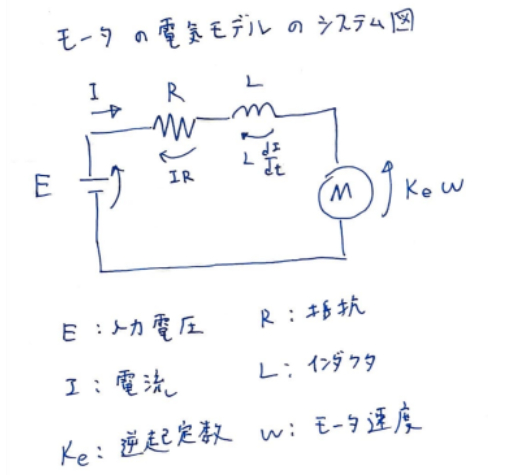 モータの電気モデルのシステム図
I
R
L
E
IR
L dI/dt
M
Ke w
E：入力電圧
R：抵抗
I：電流
L：インダクタ
Ke：逆起定数
w：モータ速度